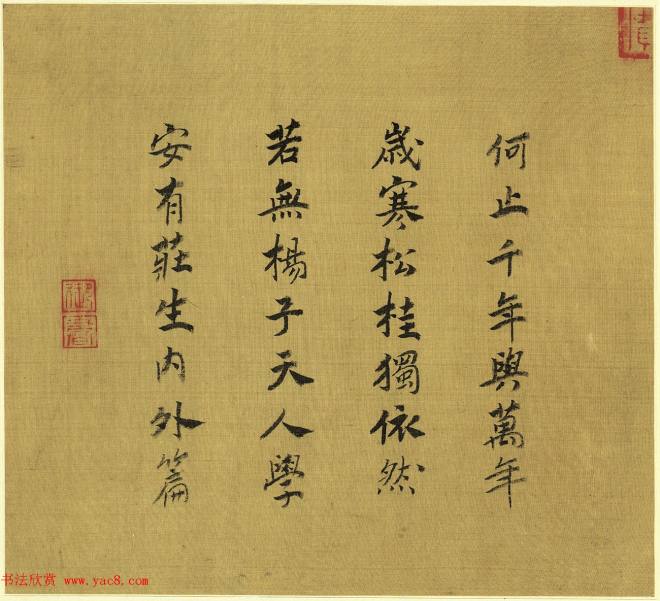 何止千年與萬年
歲寒松桂獨依然
若無楊子天人學
安有莊生內外篇
御書
书法欣赏 www.yac8.com